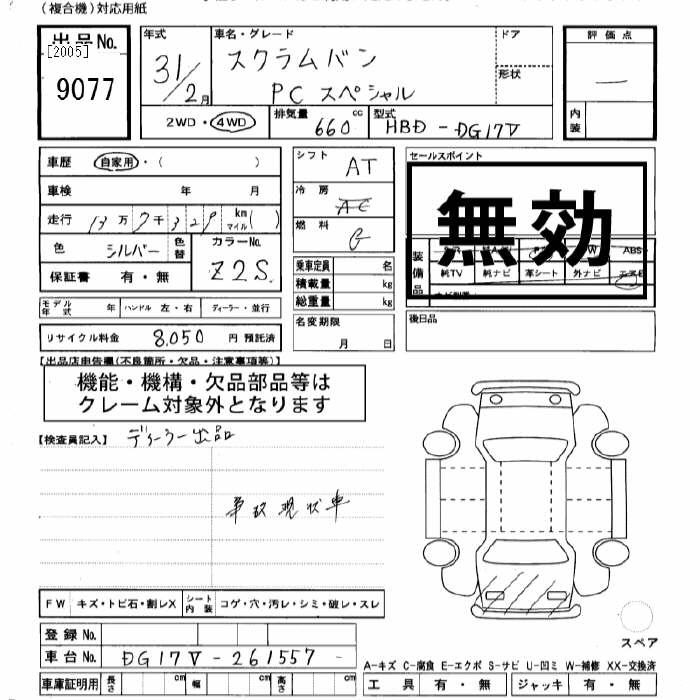 (複合機)対応用紙
出品No.
[2005]
9077
年式
31/2月
車名・グレード
スクラムバン
PC スペシャル
ドア
形状
評価点
内装
2WD・4WD
排気量
660cc
型式
HBD-DG17V
車歴 自家用・( )
車検 年 月
走行 13万7千329km マイル( )
色 シルバー 色替
カラーNo.
Z2S
保証書 有・無
モデル年式 年 ハンドル 左・右 ディーラー・並行
リサイクル料金 8,050円預託済
シフト AT
冷房 AC
燃料 G
乗車定員 名
積載量 kg
総重量 kg
名変期限
月 日
セールスポイント
無効
装備品
ABS
純TV 純ナビ 革シート 外ナビ エアB
後日品
【出品店申告欄(不良箇所・欠品・注意事項等)】
機能・機構・欠品部品等は
クレーム対象外となります
【検査員記入】 ディーラー出品
事故現状車
FW キズ・トビ石・割レX シート内装 コゲ・穴・汚レ・シミ・破レ・スレ
登録No.
車台No. DG17V-261557-
車庫証明用 長さ cm 幅 cm 高さ cm
スペア
A-キズ C-腐食 E-エクボ S-サビ U-凹ミ W-補修 XX-交換済
工具 有・無 ジャッキ 有・無